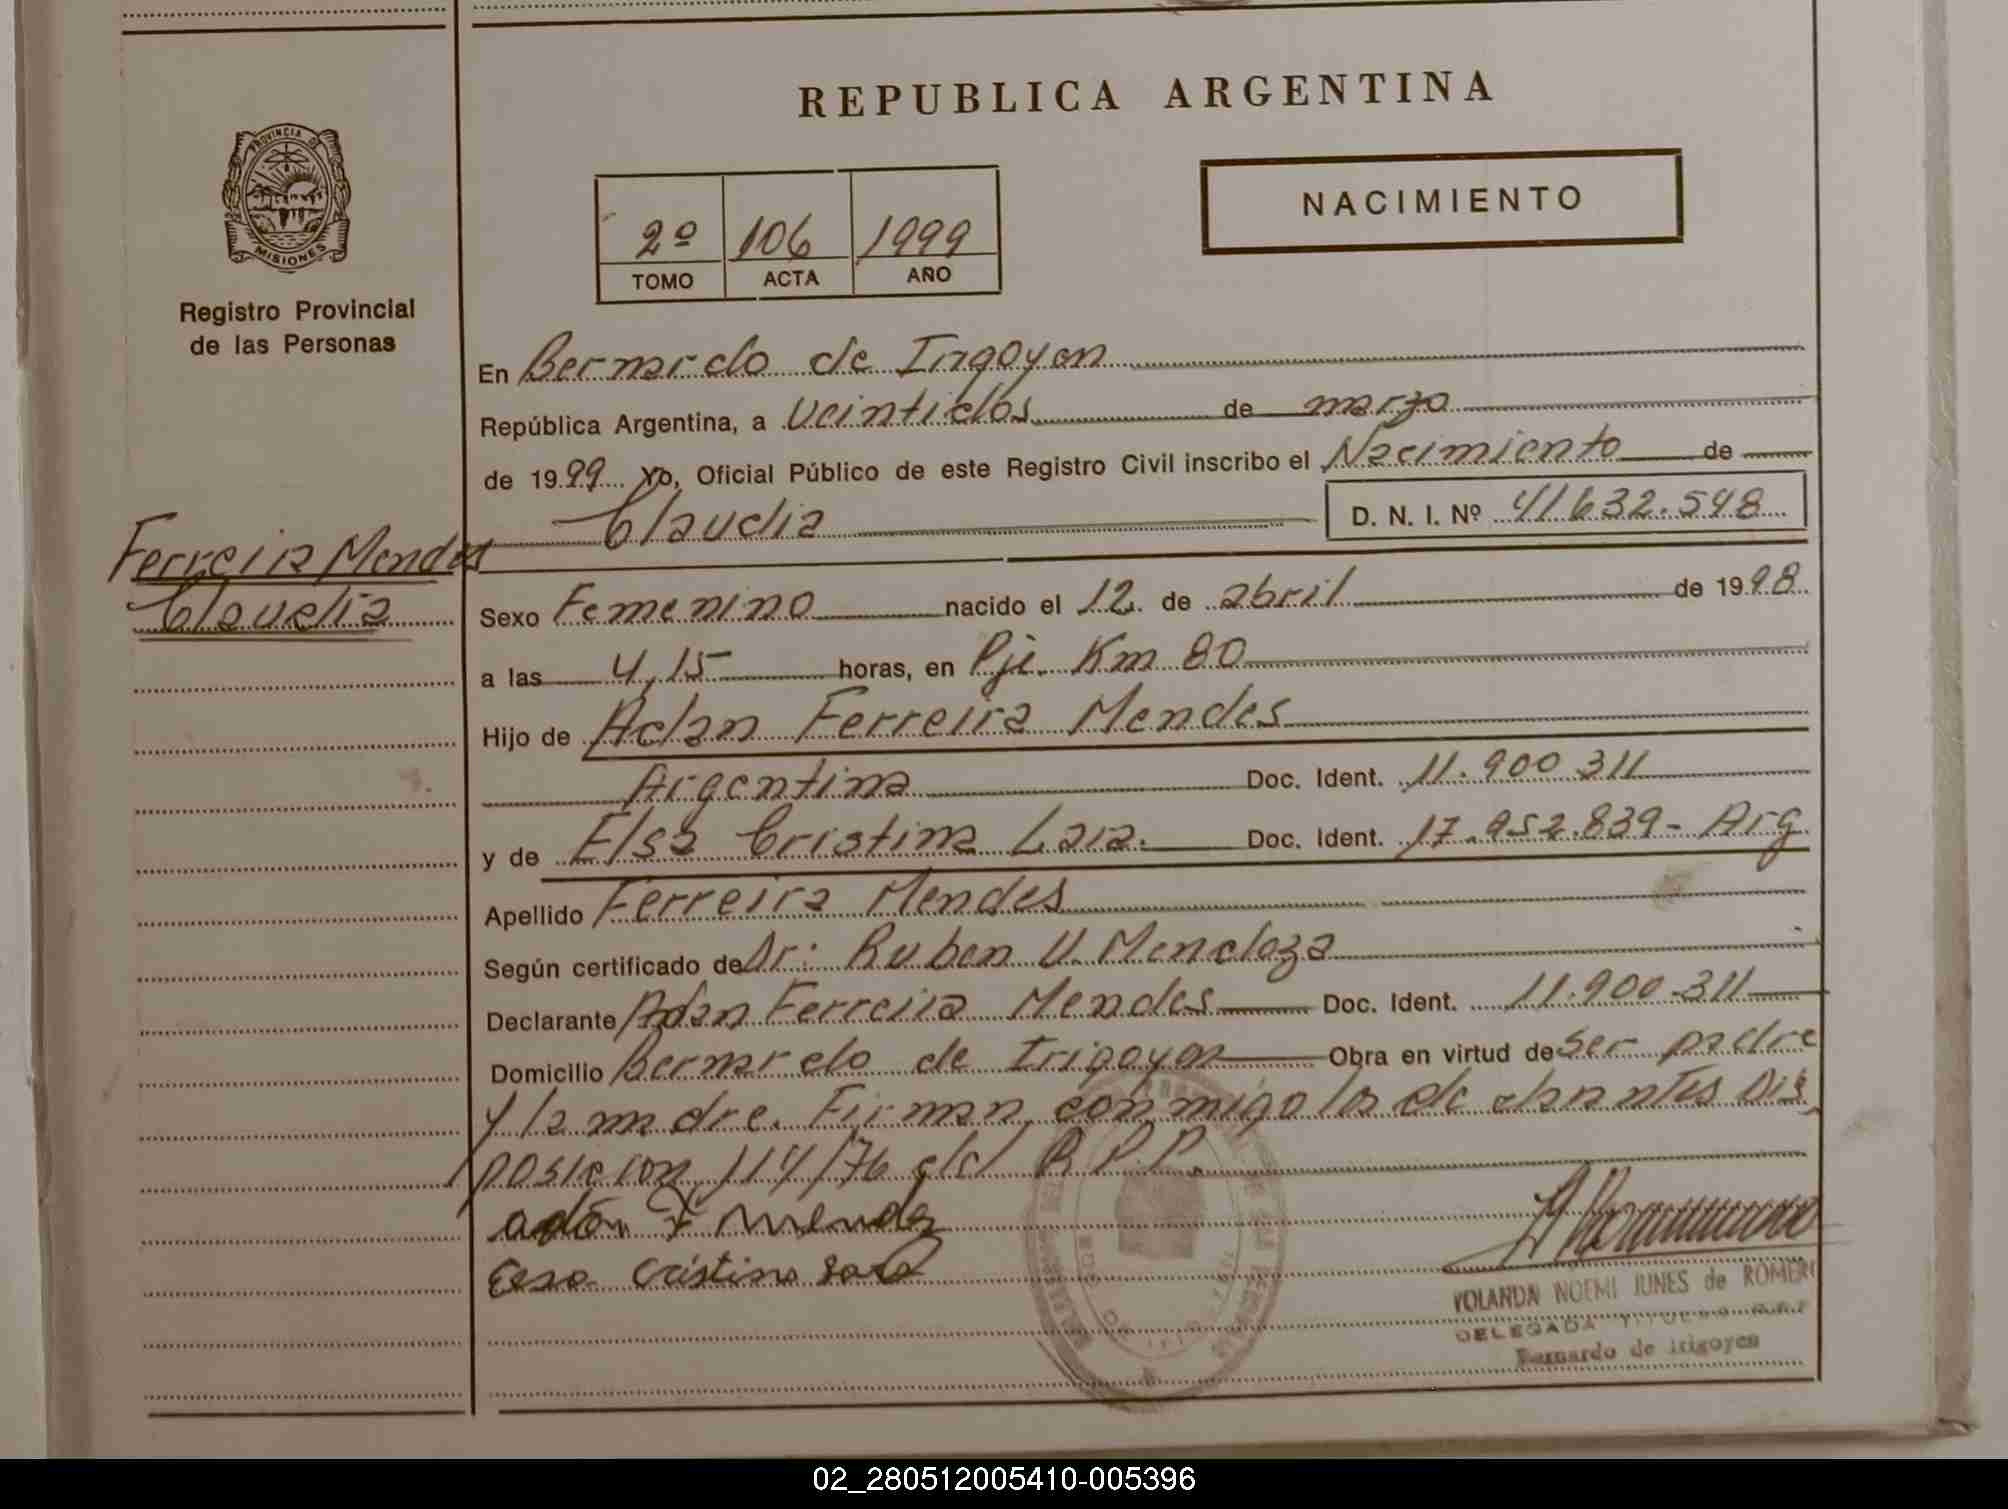 REPUBLICA ARGENTINA
PROVINCIA DE MISIONES
Registro Provincial
de las Personas
2º 106 1999
TOMO ACTA AÑO
NACIMIENTO
En Bernardo de Irigoyen
República Argentina, a veintidos de marzo
de 1999 Yo, Oficial Público de este Registro Civil inscribo el Nacimiento de
Claudia D. N. I. Nº 41632.548
Ferreira Mendes
Claudia
Sexo Femenino nacido el 12 de abril de 1998
a las 4,15 horas, en Pje. Km 80
Hijo de Adan Ferreira Mendes
Argentina Doc. Ident. 11.900 311
y de Elsa Cristina Lara. Doc. Ident. 17.952.839- Arg
Apellido Ferreira Mendes
Según certificado de Dr: Ruben V. Mendoza
Declarante Adan Ferreira Mendes Doc. Ident. 11.900.311
Domicilio Bernardo de Irigoyen Obra en virtud de ser padre
y la madre. Firman conmigo los declarantes Dis
posicion 114/76 del R.P.P.
adón F Mendes
Cristina
YOLANDA NOEMI JUNES de ROMERO
DELEGADA TITULAR R.P.P
Bernardo de Irigoyen
02_280512005410-005396